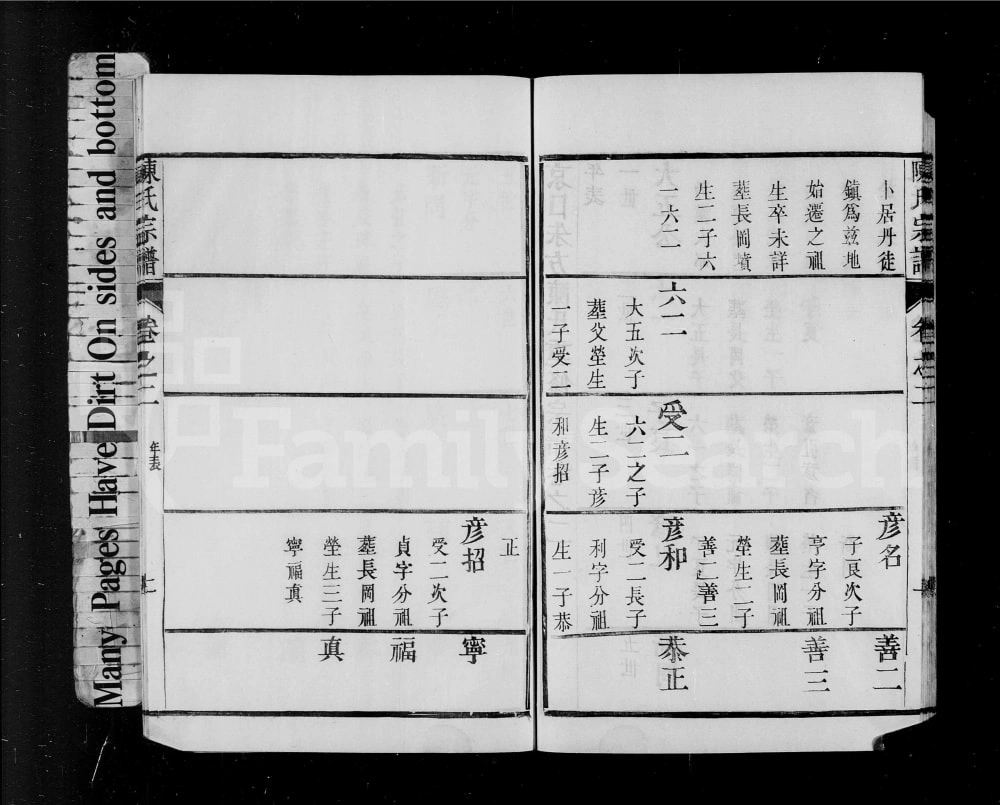 陳氏宗譜
卷之二
卜居丹徒
鎮爲茲地
始遷之祖
生卒未詳
塟長岡墳
生二子六
一六二
六二
大五次子
塟父塋生
一子受二
受二
六二之子
生二子彥
和彥招
彥名
子良次子
亨字分祖
塟長岡祖
塋生二子
善二善三
彥和
受二長子
利字分祖
生一子恭
善二
善三
恭正
正
彥招
受二次子
貞字分祖
塟長岡祖
塋生三子
寧福真
寧
福
真
陳氏宗譜
卷之二
年表
Many Pages Have Dirt On sides and bottom
FamilySearch